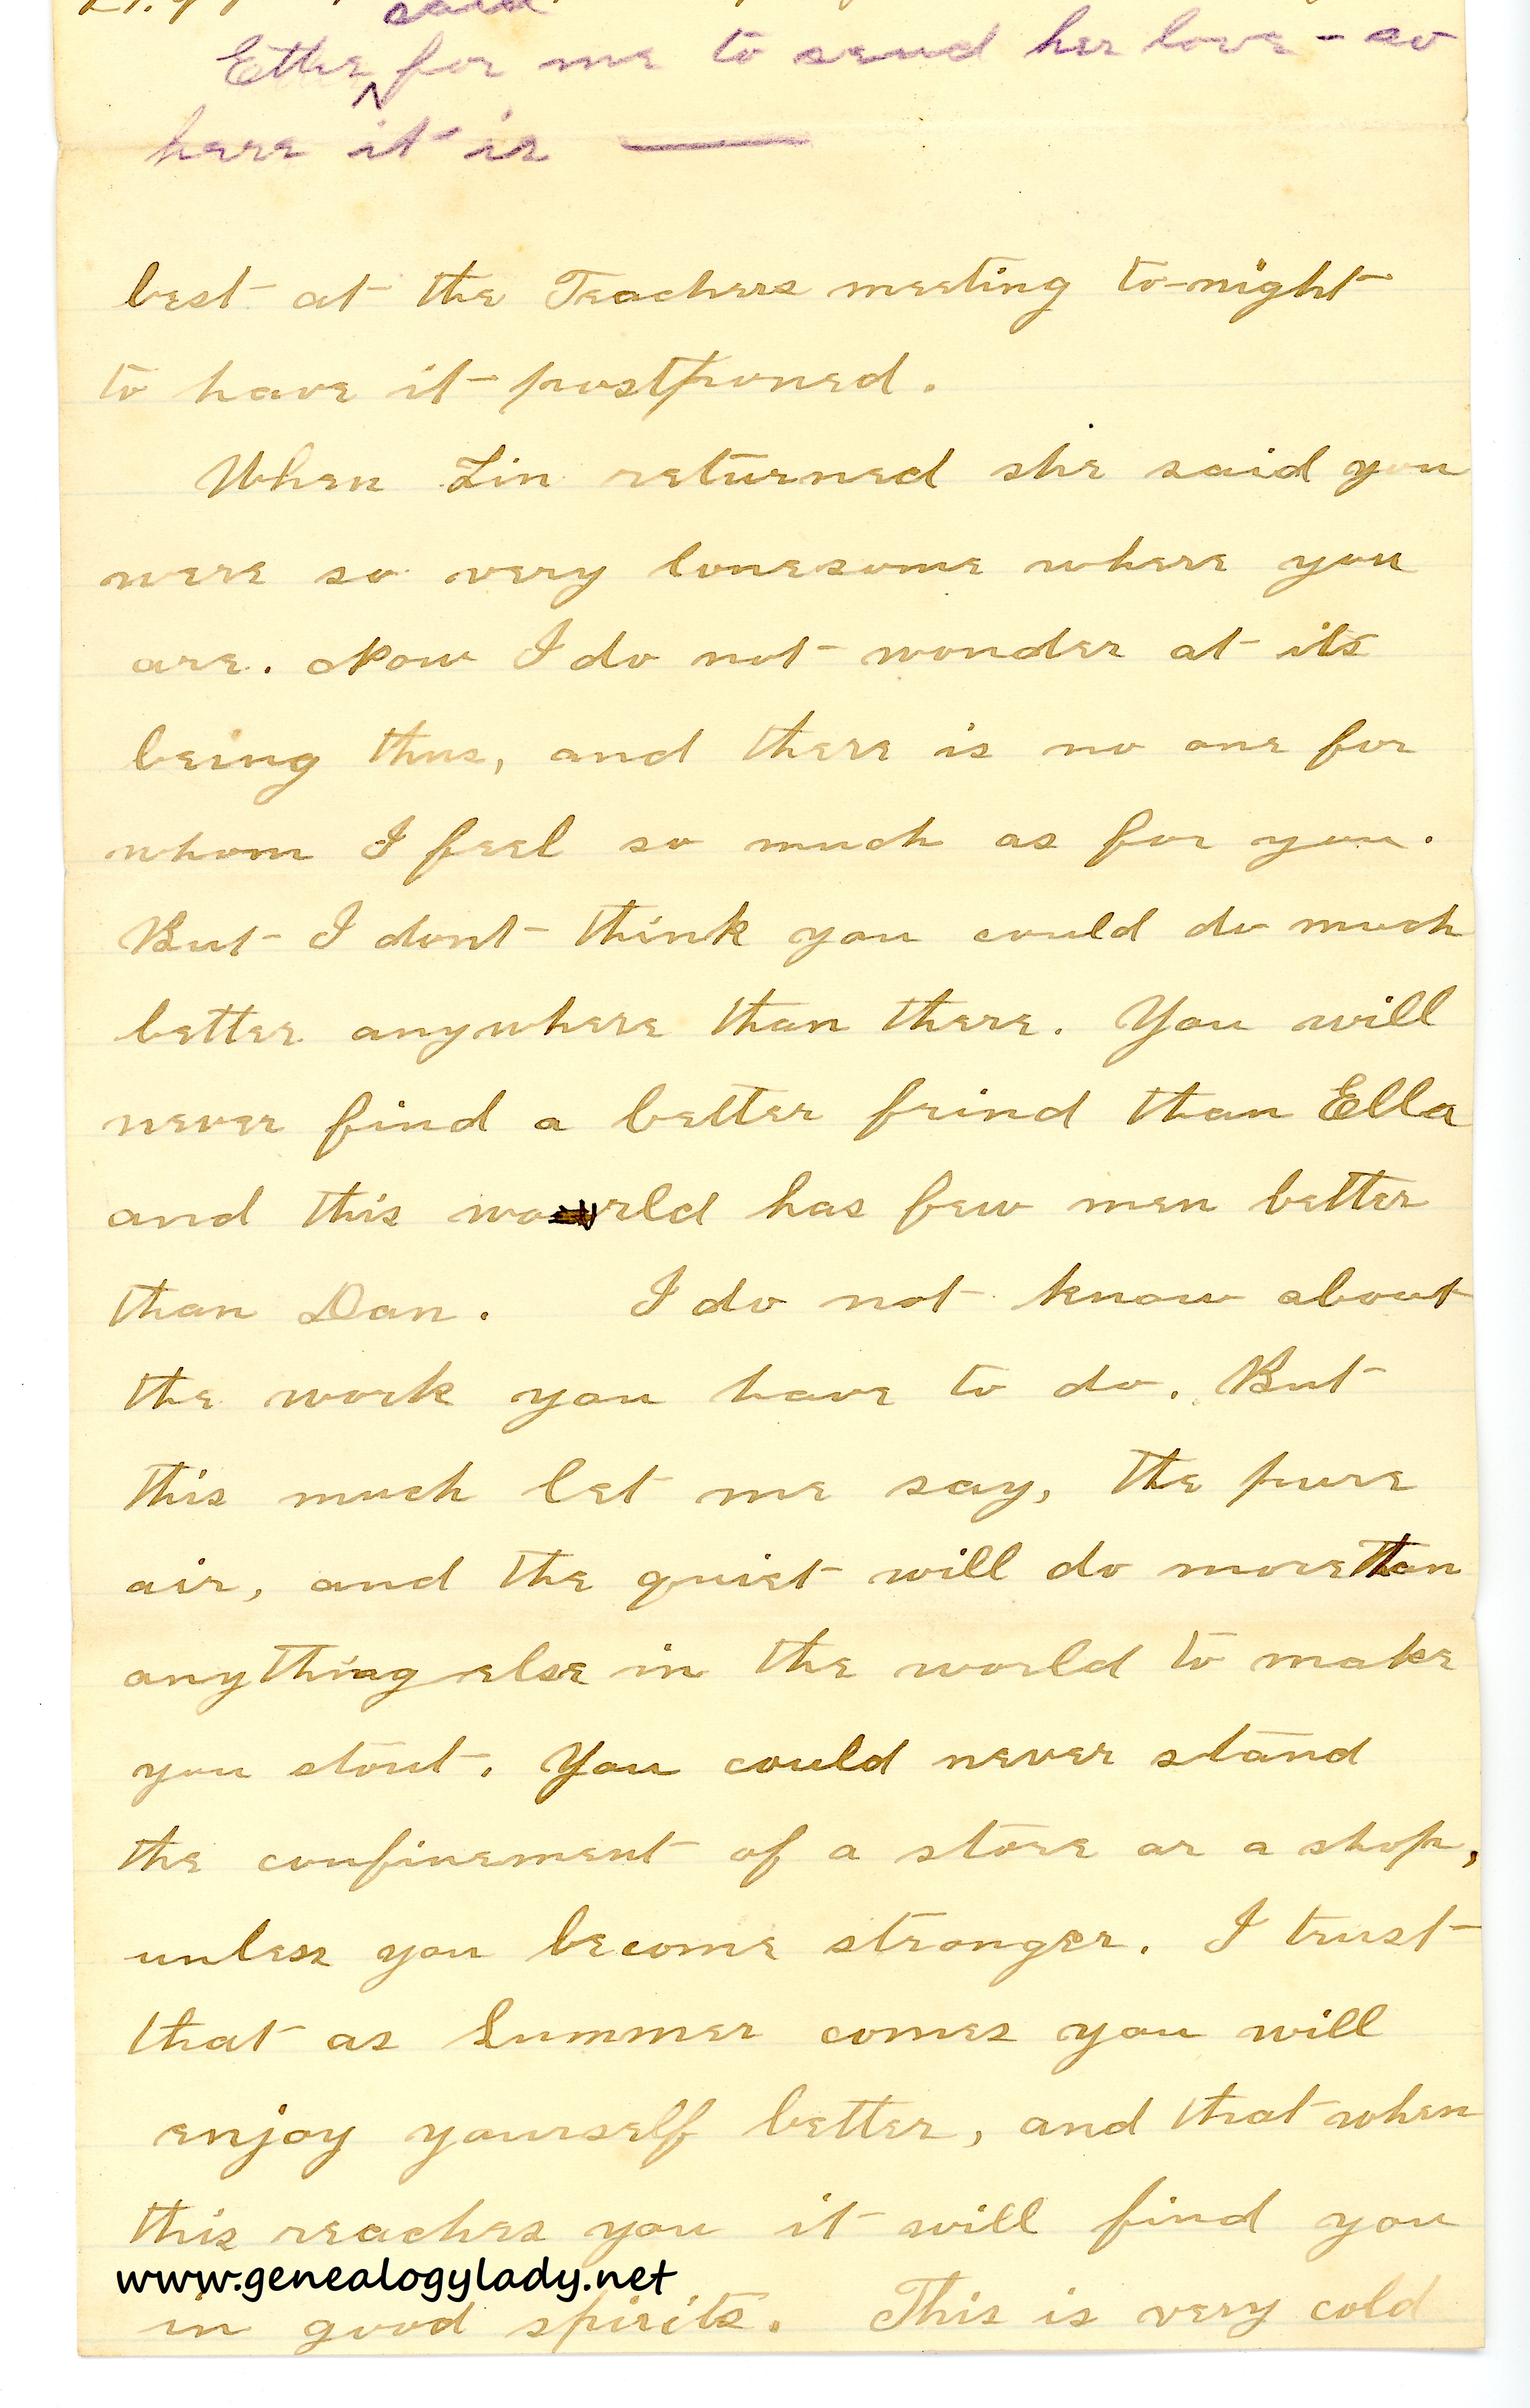 said
Ettie ^ for me to send her love - so
here it is ——
best at the Teachers meeting to-night
to have it postponed.
When Lin returned she said you
were so very lonesome where you
are. Now I do not wonder at its
being thus, and there is no one for
whom I feel so much as for you.
But I dont think you could do much
better anywhere than there. You will
never find a better frind than Ella
and this world has few men better
than Dan. I do not know about
the work you have to do. But
this much let me say, the pure
air, and the quiet will do more than
anything else in the world to make
you stout. You could never stand
the confinement of a store or a shop,
unless you become stronger. I trust
that as Summer comes you will
enjoy yourself better, and that when
this reaches you it will find you
www.genealogylady.net
in good spirits. This is very cold